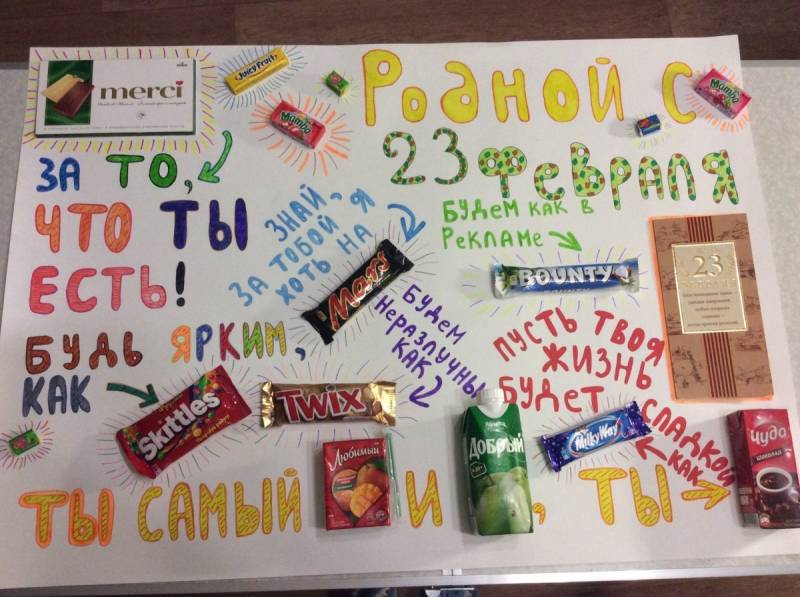 merci
Juicy Fruit
Mamba
Mamba
РОДНОЙ С
23 ФЕВРАЛЯ
ЗА ТО,
ЧТО ТЫ
ЕСТЬ!
ЗНАЙ,
ЗА ТОБОЙ Я
ХОТЬ НА
Mars
БУДЕМ КАК В
РЕКЛАМЕ
BOUNTY
23
БУДЬ ЯРКИМ,
КАК
Skittles
TWIX
БУДЕМ
НЕРАЗЛУЧНЫ
КАК
ПУСТЬ ТВОЯ
ЖИЗНЬ
БУДЕТ
СЛАДКОЙ
КАК
Milky Way
ТЫ САМЫЙ
Любимый
И
Добрый
, ТЫ
Чудо
шоколад